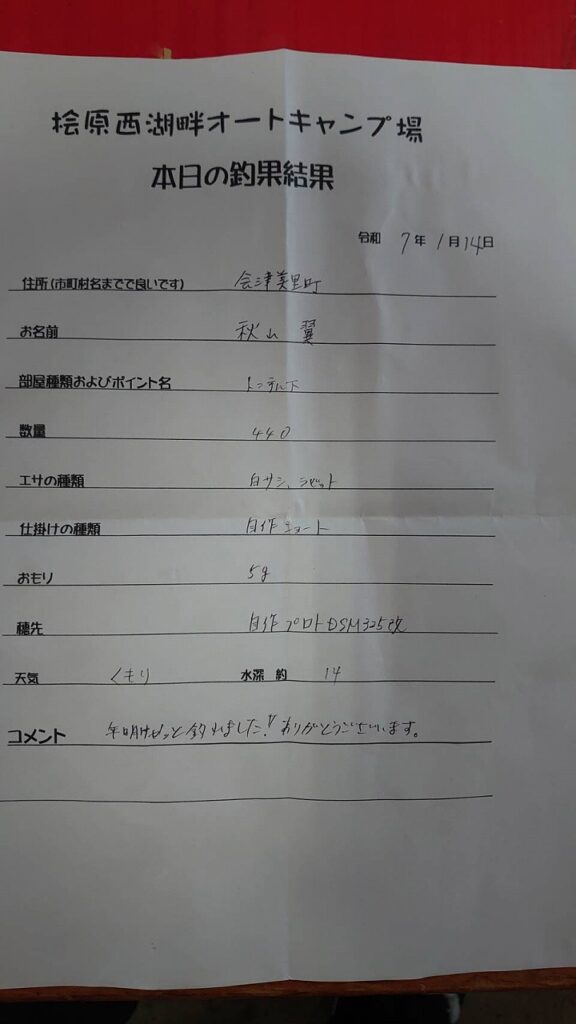 桧原西湖畔オートキャンプ場
本日の釣果結果
令和 7年 1月 14日
住所(市町村名までで良いです) 会津美里町
お名前 秋山 翼
部屋種類およびポイント名 トンネル下
数量 440
エサの種類 白サシ、ラビット
仕掛けの種類 自作ショート
おもり 5g
穂先 自作プロトDSM325改
天気 くもり 水深 約 14
コメント 年明けやっと釣れました!! ありがとうございます。